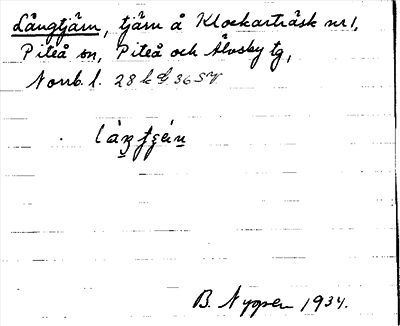 Långtjärn, tjärn å Klockarträsk nr 1,
Piteå sn, Piteå och Älvsby tg,
Norrb. l. 28 k d. 36 SV
B. Nygren 1934.